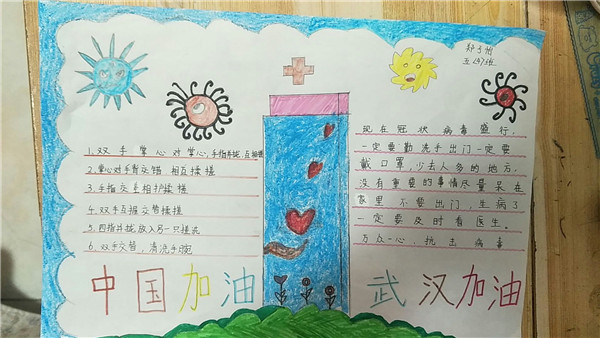 五(4)班
1. 双手掌心对掌心,手指并拢,互相
2. 掌心对手背交错 相互揉搓
3. 手指交叉相护揉搓
4. 双手互握交替揉搓
5. 四指并拢放入另一只搓洗
6. 双手交替,清洗手腕
现在冠状病毒盛行,
一定要勤洗手出门一定要
戴口罩,少去人多的地方,
没有重要的事情尽量呆在
家里不要出门,生病了
一定要及时看医生。
万众一心,抗击病毒
中国加油 武汉加油